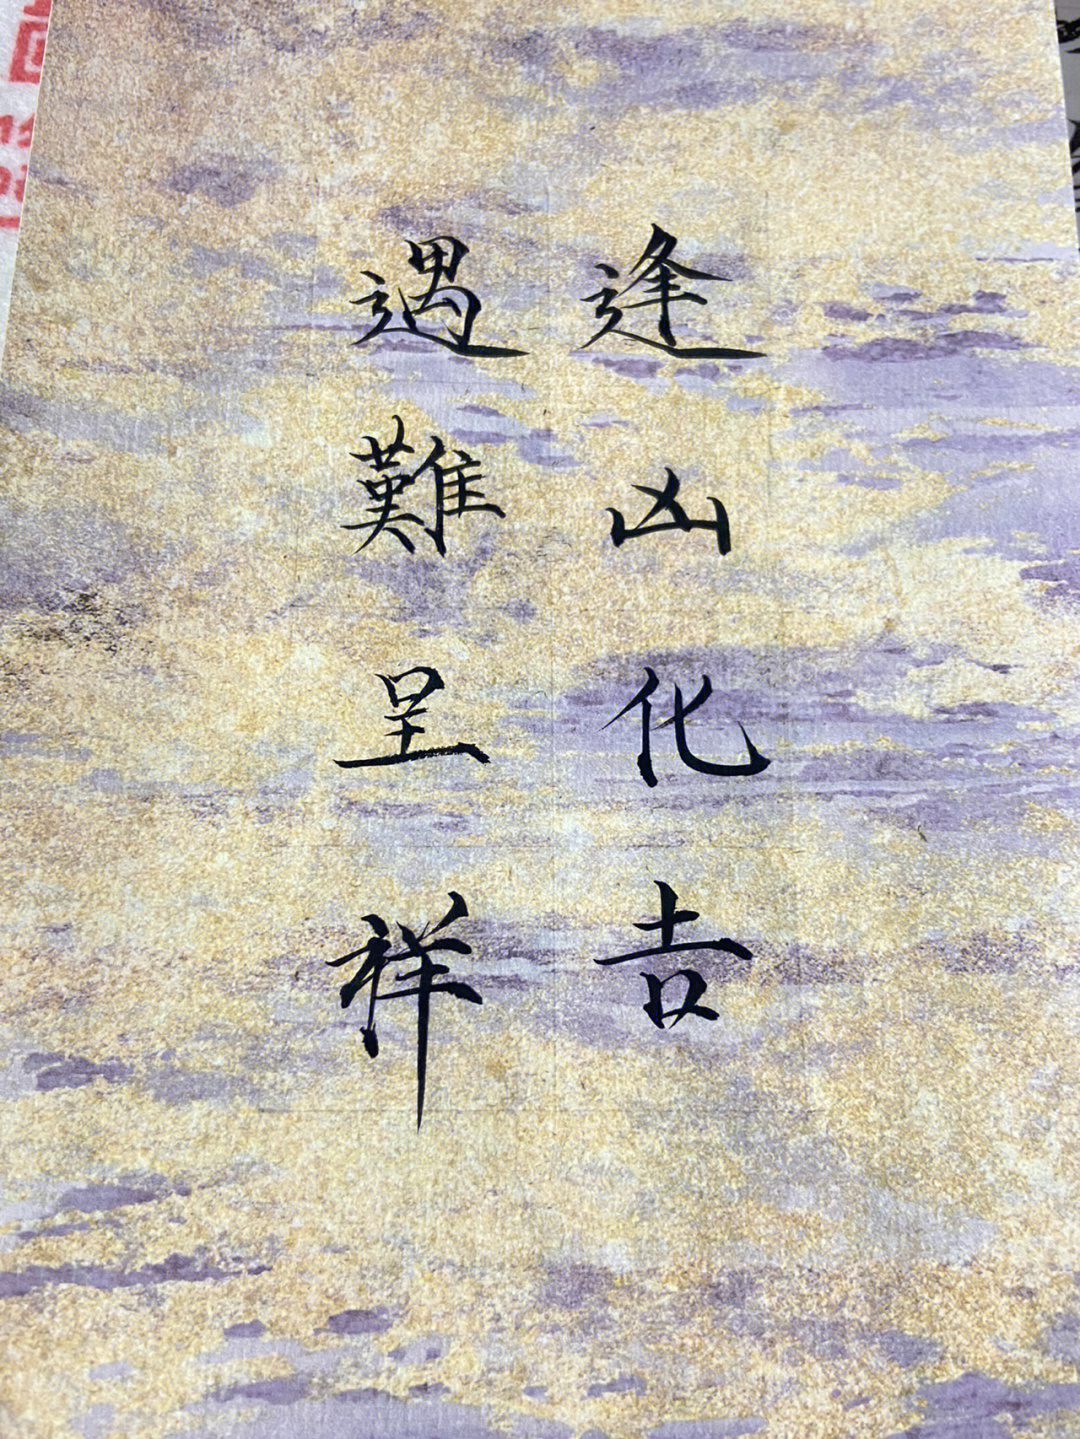 逢凶化吉
遇難呈祥